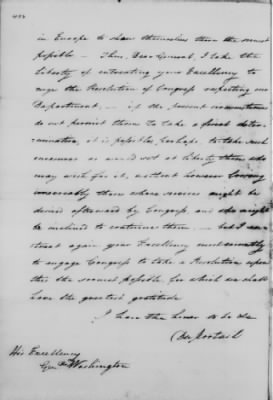 in Europe to shew themselves there the soonest
possible — Thus, Dear General, I take the
Liberty of entreating your Excellency to
urge the Resolution of Congress respecting our
Department, — if the present circumstances
do not permit them to take a final deter-
mination, it is possible, perhaps, to take such
measures as would set at liberty those who
may wish for it, without however loosing
irrecoverably those whose services might be
desired afterward by Congress, and who might
be inclined to continue them — but I en-
treat again your Excellency most earnestly
to engage Congress to take a Resolution upon
this the soonest possible, for which we shall
have the greatest gratitude
I have the honor to be &c
Du portail
His Excellency
Genl Washington